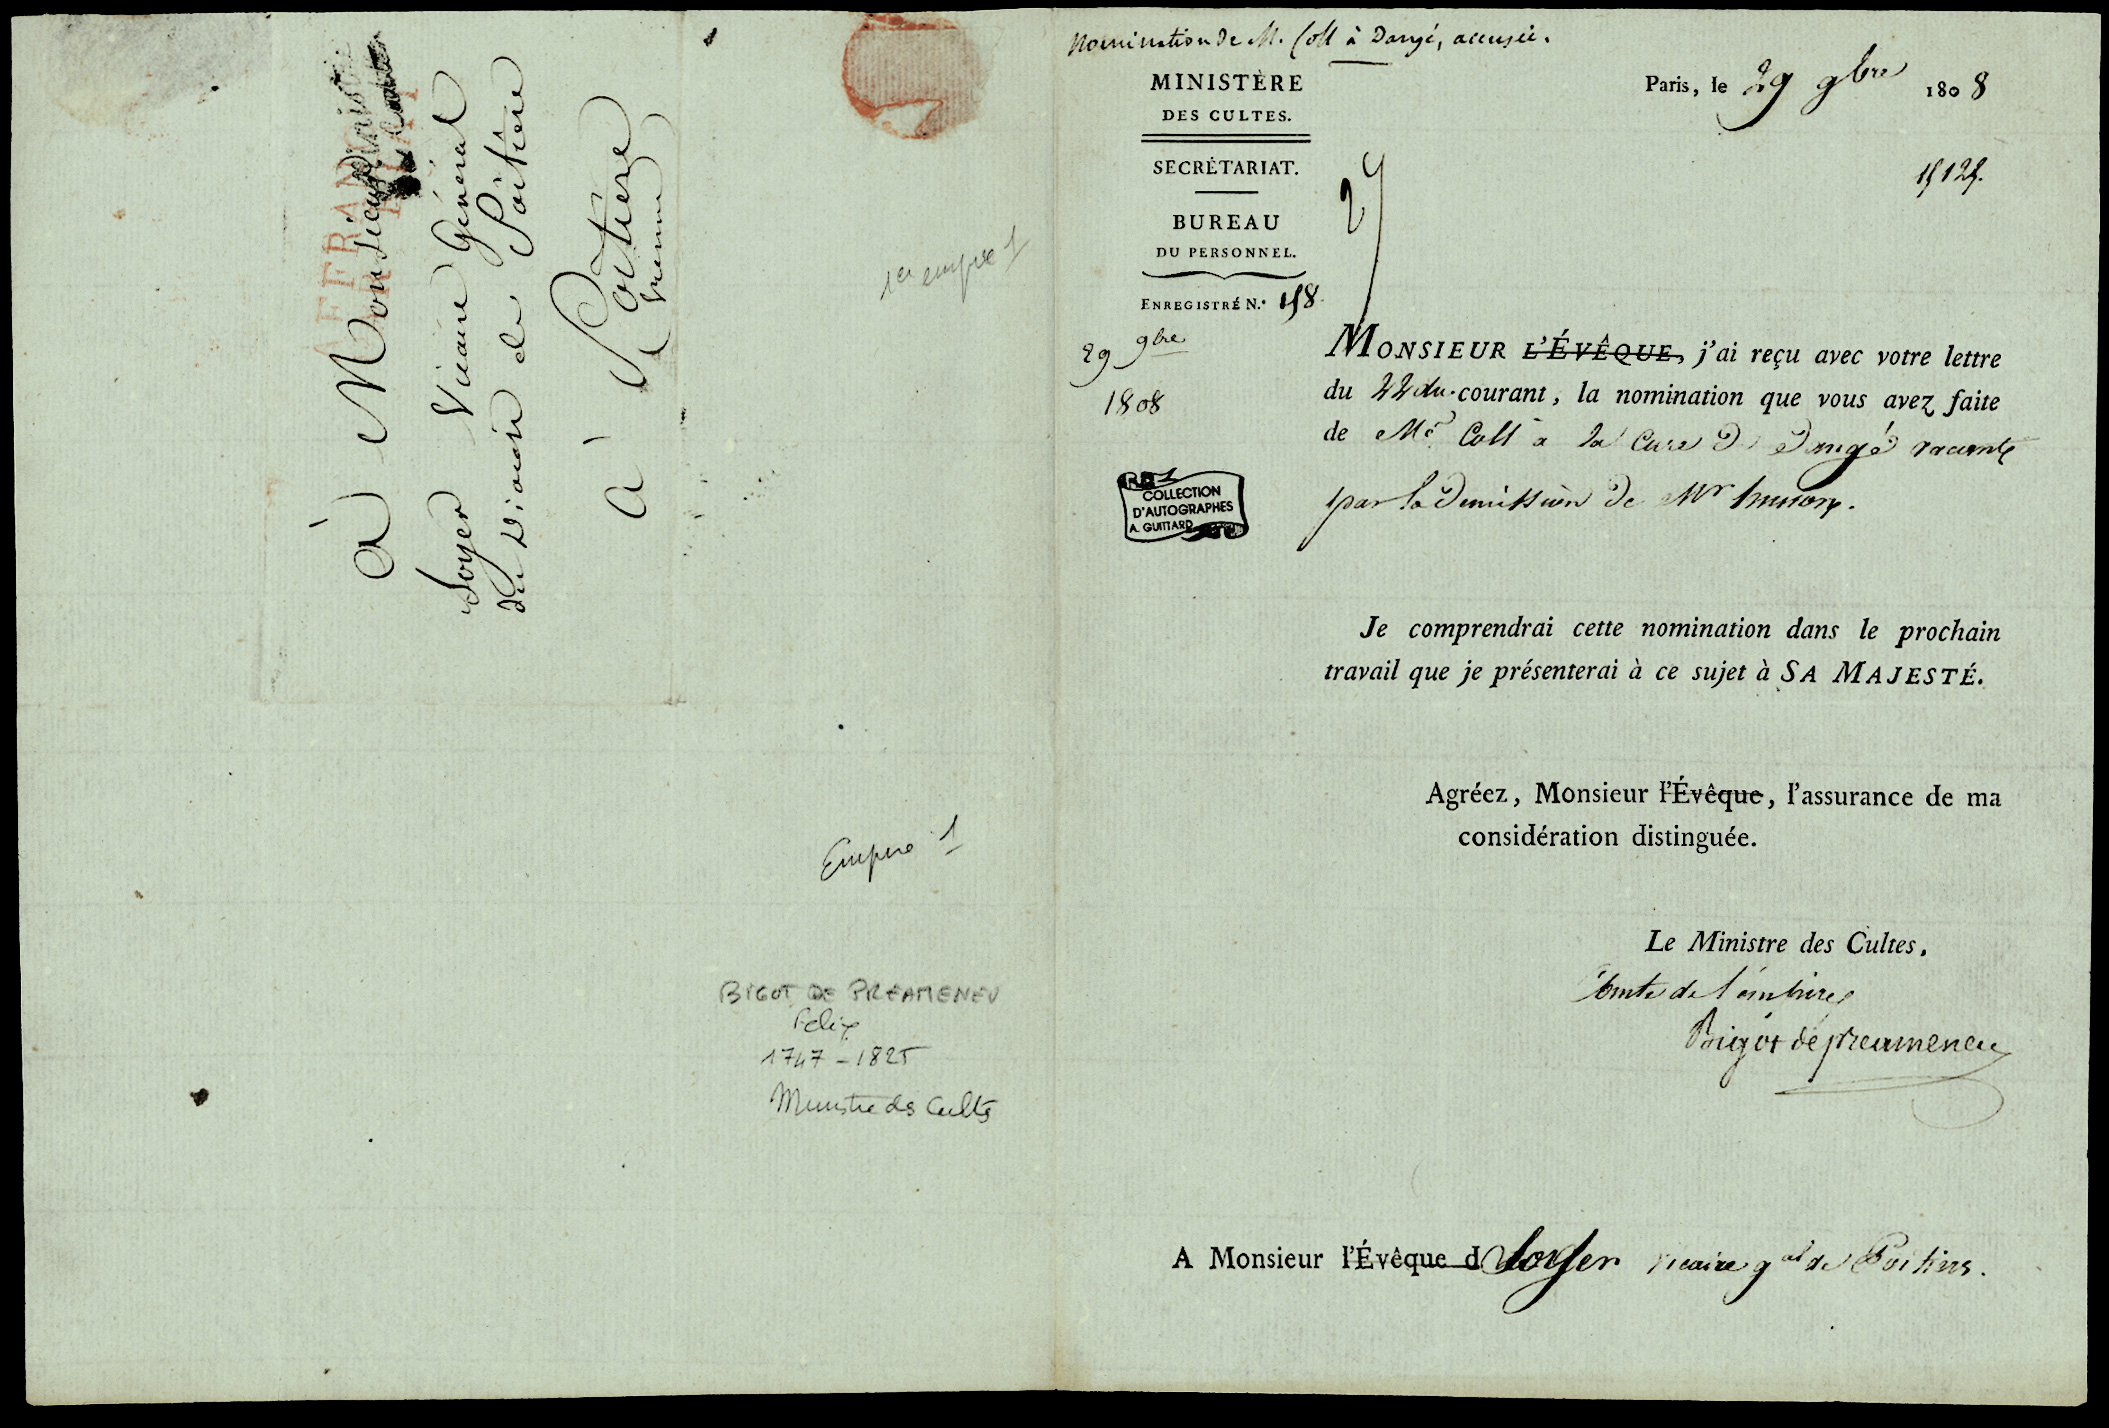 à Monsieur
Soyer Vicaire Général
du Diocèse de Poitiers
à Poitiers
Vienne
1er empire 1
Empire 1
BIGOT DE PREAMENEU
Felix
1747 - 1825
Ministre des Cultes
Nomination de M. Coll à Dangé, accusée.
MINISTÈRE
DES CULTES.
SECRÉTARIAT.
BUREAU
DU PERSONNEL.
ENREGISTRÉ N.º 158.
29 9bre
1808
COLLECTION
D'AUTOGRAPHES
A. GUITTARD
Paris, le 29 9bre 1808
29
MONSIEUR L'ÉVÊQUE, j'ai reçu avec votre lettre
du 22 du courant, la nomination que vous avez faite
de Mr Coll à la Cure de Dangé vacante
par la Demission de Mr
Je comprendrai cette nomination dans le prochain
travail que je présenterai à ce sujet à SA MAJESTÉ.
Agréez, Monsieur l'Évêque, l'assurance de ma
considération distinguée.
Le Ministre des Cultes,
Comte de l'empire
Bigot de preameneu
A Monsieur l'Évêque d Soyer vicaire gal de Poitiers.